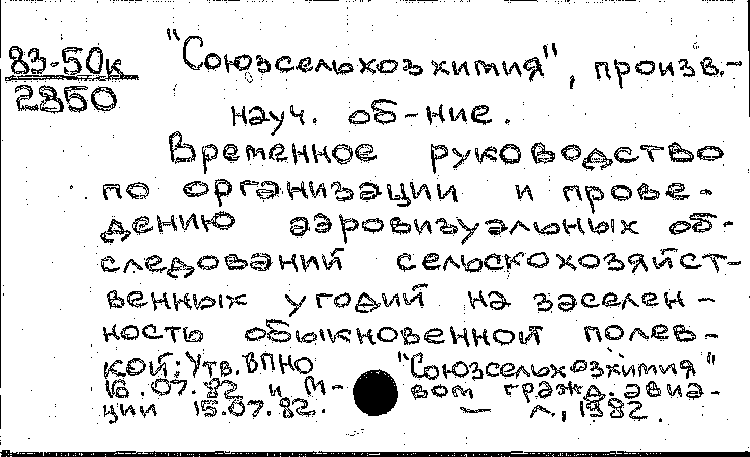 83-50к
2850
"Союзсельхозхимия", произв.-
науч. об-ние.
Временное руководство
по организации и прове-
дению аэровизуальных об-
следований сельскохозяйст-
венных угодий на заселен-
ность обыкновенной полев-
кой: Утв. ВПНО "Союзсельхозхимия"
16.07.82 и М-вом гражд. авиа-
ции 15.07.82. — Л., 1982.